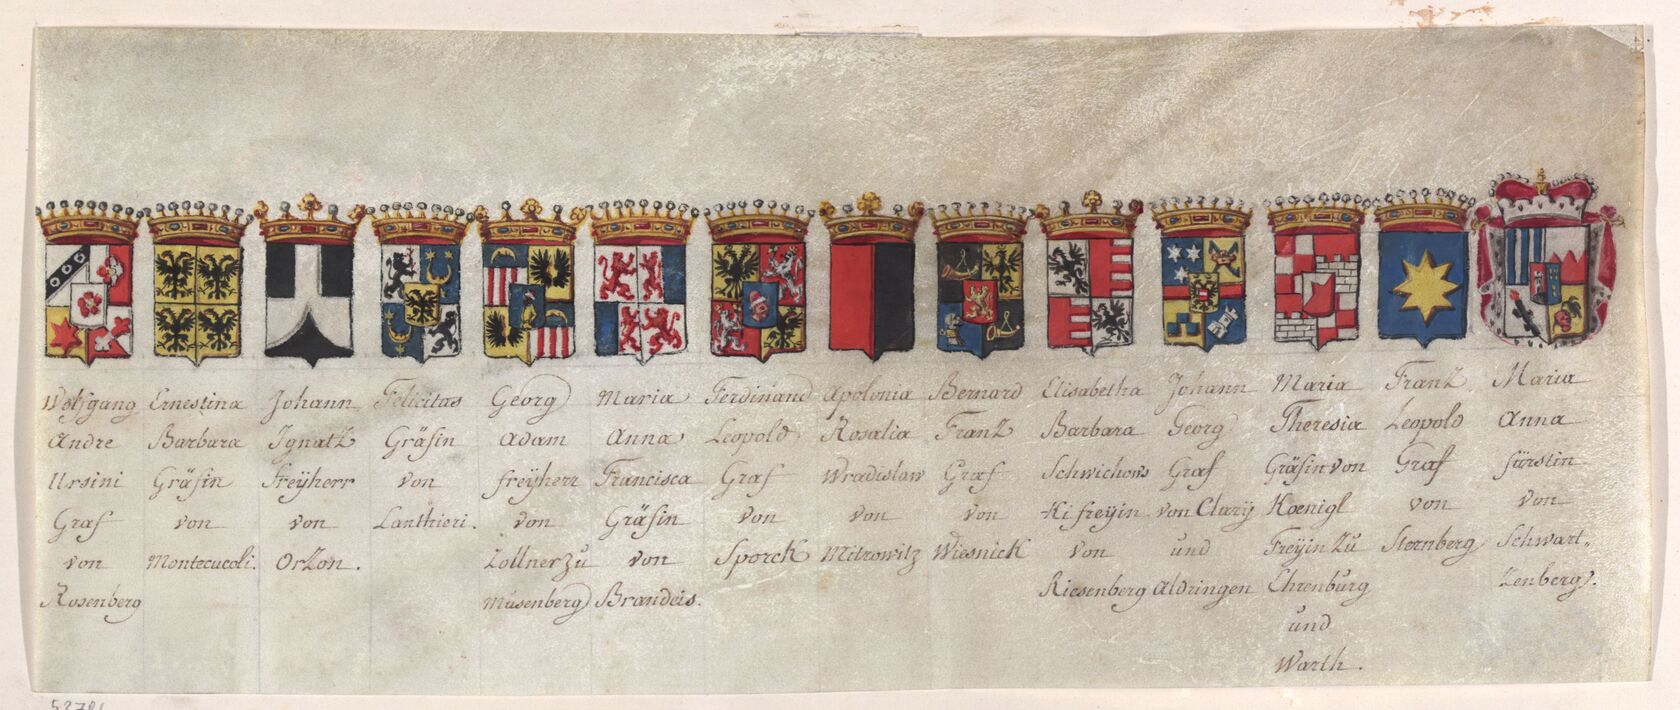 Wolfgang
Andre
Ursini
Graf
von
Rosenberg
Ernestina
Barbara
Gräfin
von
Montecucoli.
Johann
Ignatz
Freÿherr
von
Orzon.
Felicitas
Gräfin
von
Lanthieri.
Georg
Adam
freÿherr
von
Zollner zu
Müsenberg
Maria
Anna
Francisca
Gräfin
von
Brandeis.
Ferdinand
Leopold
Graf
von
Sporck
Apolonia
Rosalia
Wradislaw
von
Mitrowitz
Bernard
Frantz
Graf
von
Wiesnick
Elisabetha
Barbara
Schwichows
Ki freÿin
von
Riesenberg
Johann
Georg
Graf
von Clarÿ
und
Aldringen
Maria
Theresia
Gräfin von
Hoenigl
Freÿin zu
Ehrenburg
und
Warth.
Frantz
Leopold
Graf
von
Sternberg
Maria
Anna
fürstin
von
Schwart-
zenberg.